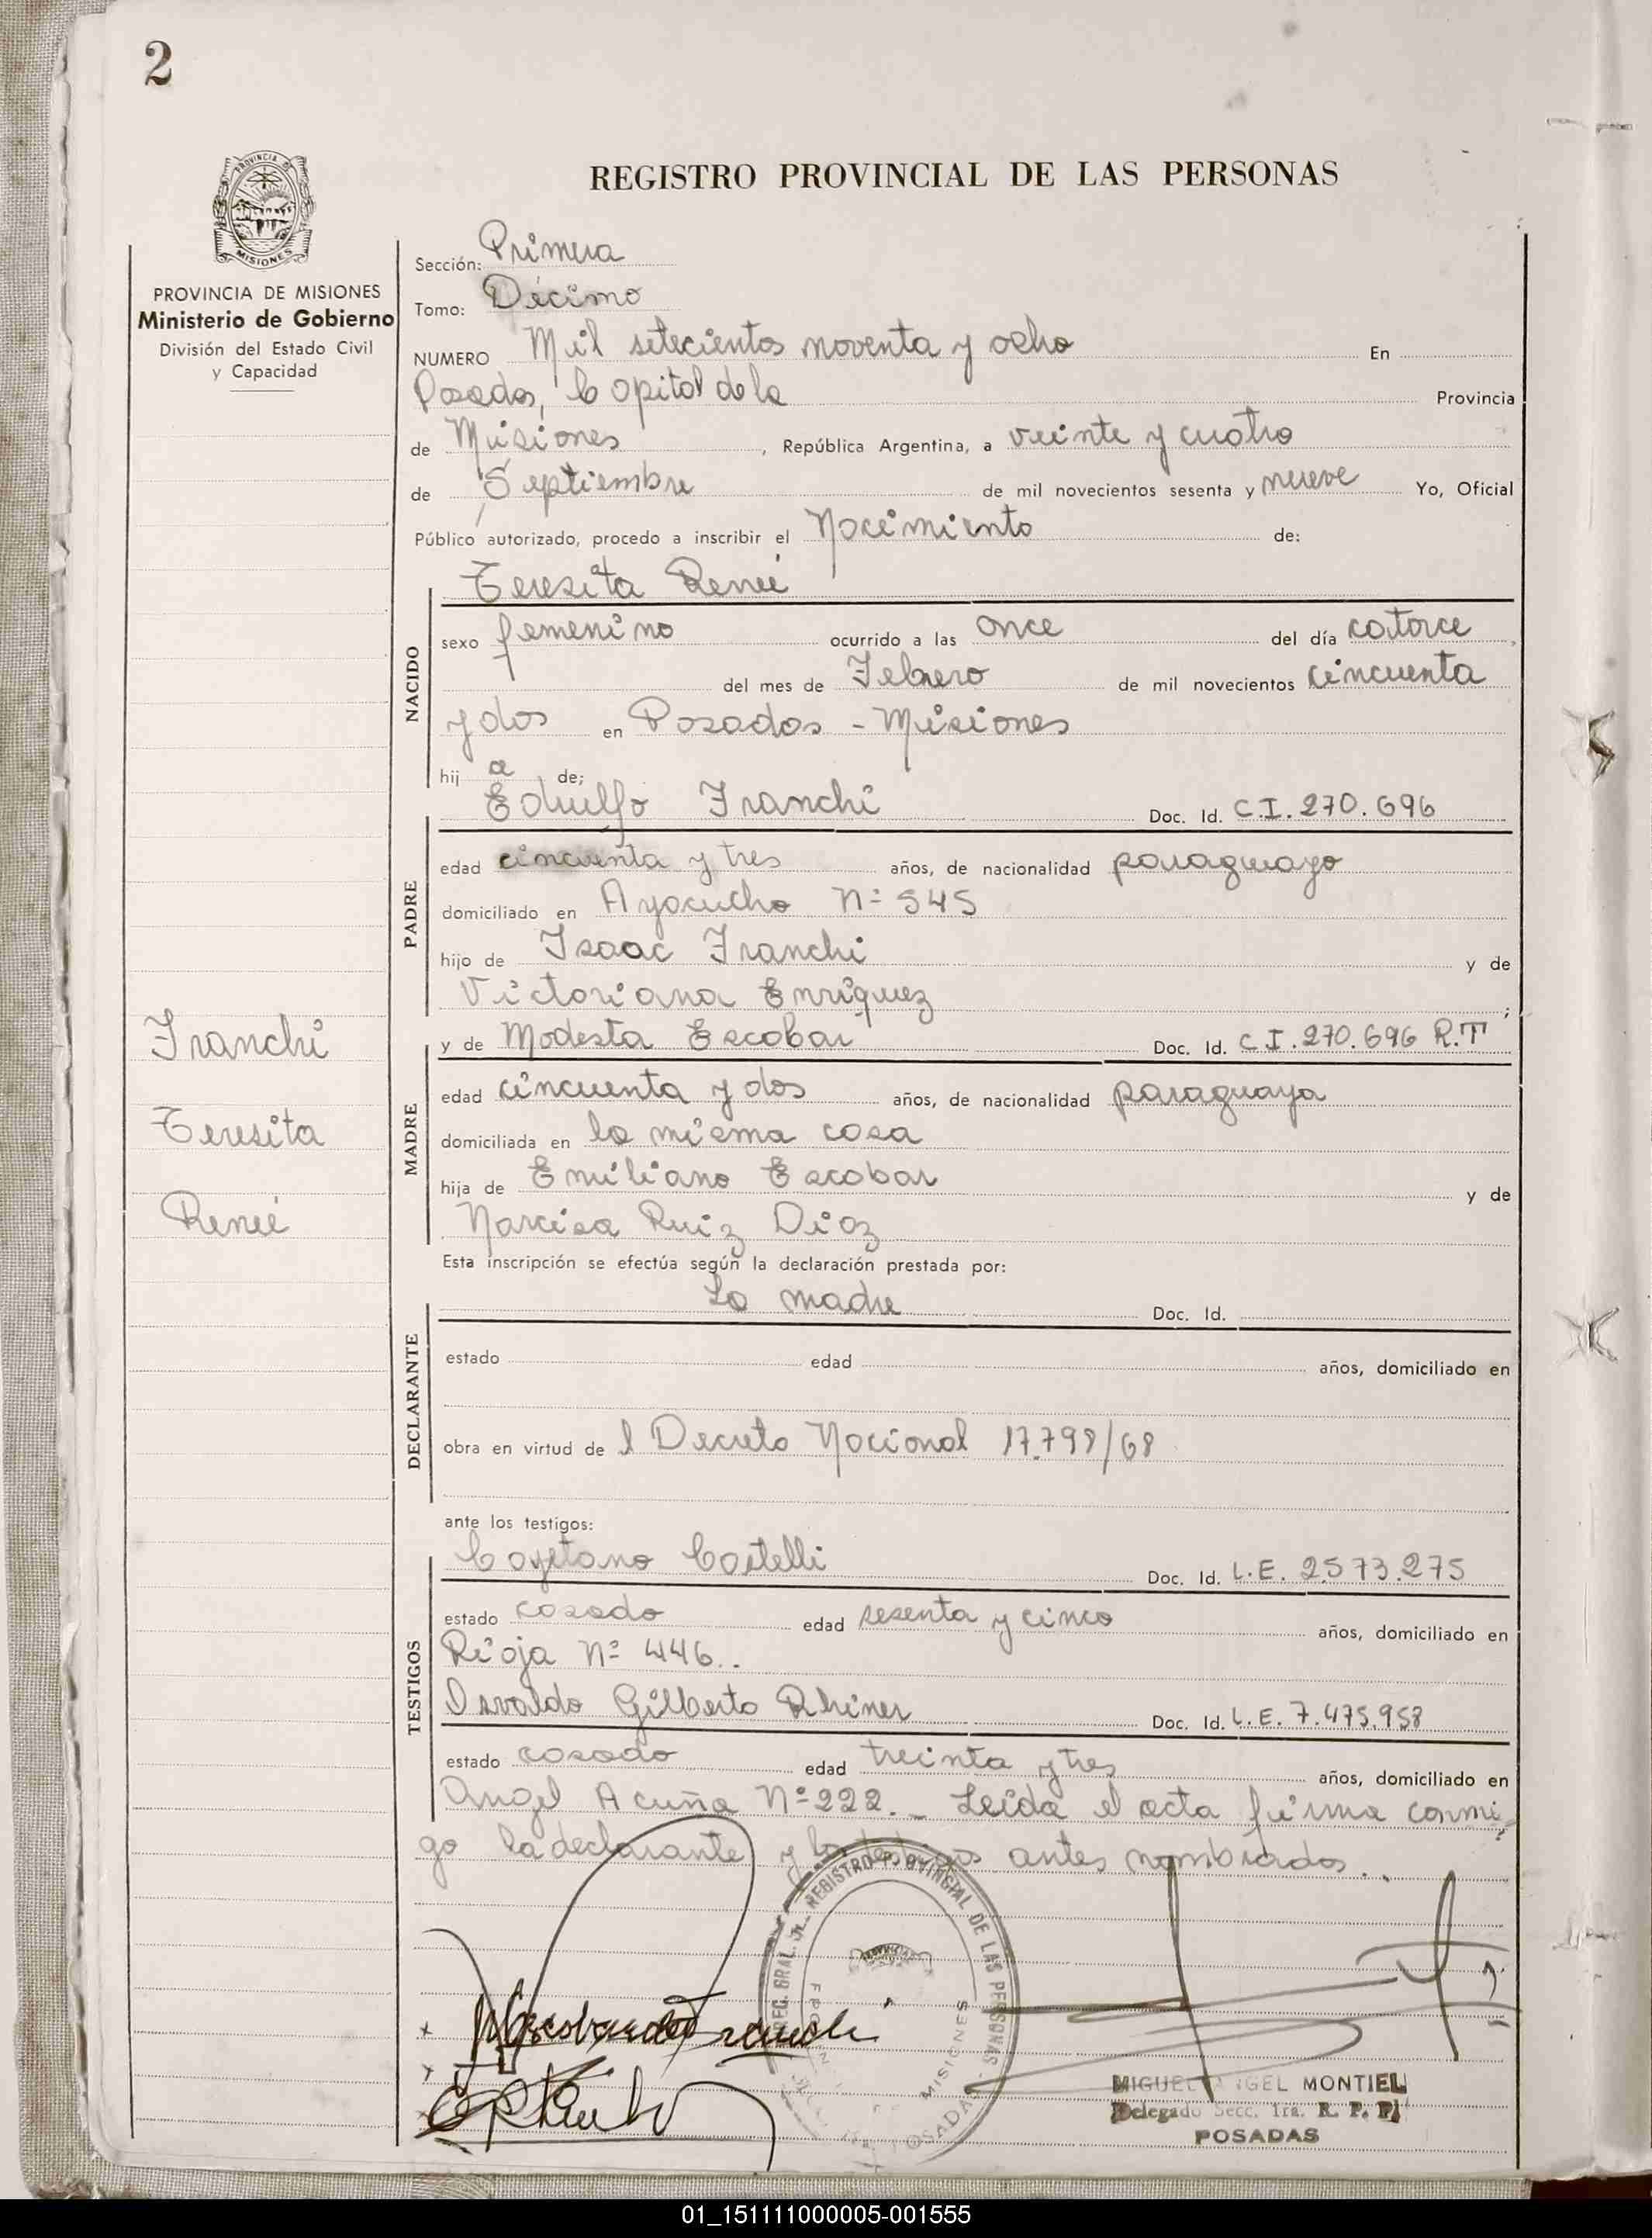 2
REGISTRO PROVINCIAL DE LAS PERSONAS
PROVINCIA DE MISIONES
Ministerio de Gobierno
División del Estado Civil
y Capacidad
Sección: Primera
Tomo: Décimo
NUMERO Mil setecientos noventa y ocho En
Posadas, Capital de la Provincia
de Misiones, República Argentina, a veinte y cuatro
de Septiembre de mil novecientos sesenta y nueve Yo, Oficial
Público autorizado, procedo a inscribir el Nacimiento de:
Teresita Reneé
NACIDO
sexo femenino ocurrido a las once del día catorce
del mes de Febrero de mil novecientos cincuenta
y dos en Posadas - Misiones
hija de;
Edulfo Franchi Doc. Id. C.I. 270.696
PADRE
edad cincuenta y tres años, de nacionalidad paraguayo
domiciliado en Ayacucho Nº 545
hijo de Isaac Franchi y de
Victoriana Enriquez;
y de Modesta Escobar Doc. Id. C.I. 270.696 R.T
MADRE
edad cincuenta y dos años, de nacionalidad paraguaya
domiciliada en la misma casa
hija de Emiliano Escobar y de
Narcisa Ruiz Diaz
Franchi
Teresita
Reneé
Esta inscripción se efectúa según la declaración prestada por:
La madre Doc. Id.
DECLARANTE
estado edad años, domiciliado en
obra en virtud de l Decreto Nacional 17.798/68
ante los testigos:
Cayetano Castelli Doc. Id. L.E. 2573.275
TESTIGOS
estado casado edad sesenta y cinco años, domiciliado en
Rioja Nº 446..
Osvaldo Gilberto Rhiner Doc. Id. L.E. 7.475.958
estado casado edad treinta y tres años, domiciliado en
Angel Acuña Nº 222. - Leida el acta firma conmi
go la declarante y los testigos antes nombrados.
REGISTRO PROVINCIAL DE LAS PERSONAS
MISIONES
POSADAS
MIGUEL ANGEL MONTIEL
Delegado Secc. 1ra. R. P. P.
POSADAS
01_151111000005-001555